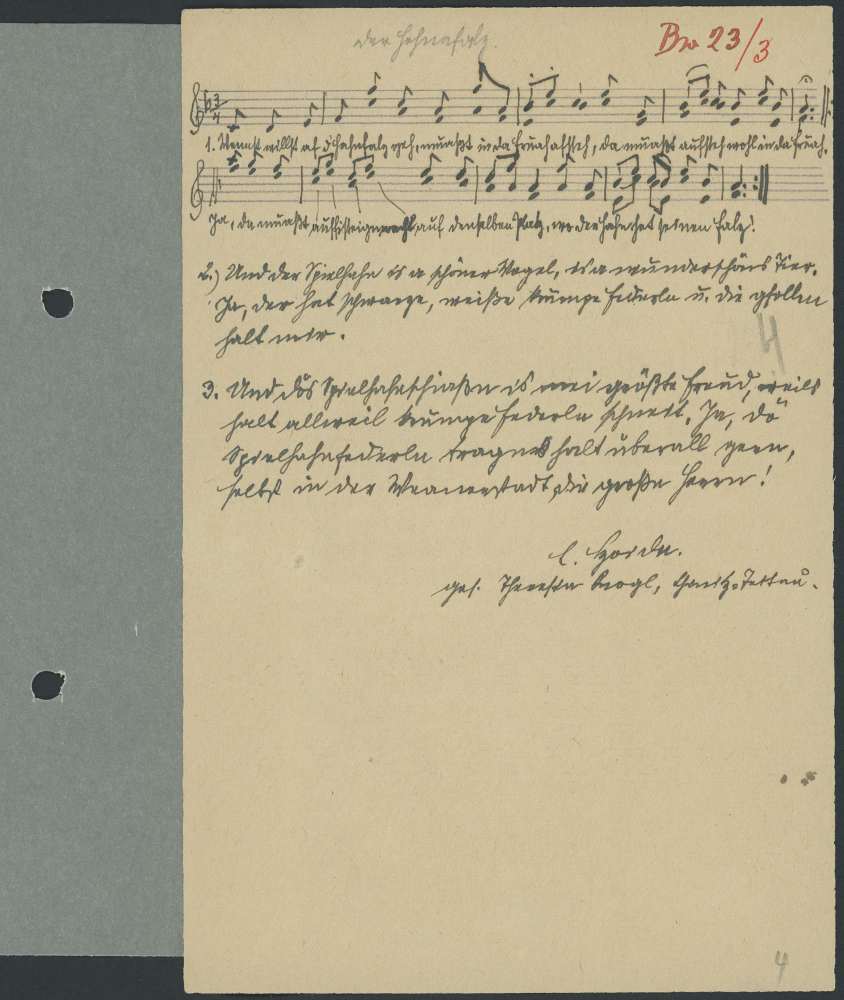 Der Hohnafalz.
Bw 23/3
1. Wennst willst af d'Hahnfalz geh, muaßt in da Fruah afsteh, da muaßt aufsteh wohl in da Fruah.
Ja, da muaßt auffisteign auf denselben Platz, wo der Hahn hat seinen Falz!
2.) Und der Spielhahn is a schöner Vogel, is a wunderschöns Tier.
Ja, der hat schwarze, weiße krumpe Federln u. die gfallen
halt mir.
4
3. Und dös Spielhahnschiaßn is mei größte Freud, weils
halt allweil krumpe Federln schneit. Ja, dö
Spielhahnfederln tragns halt überall gern,
selbst in der Weanerstadt, die große Herrn!
ges. Theresia Kogl,
4